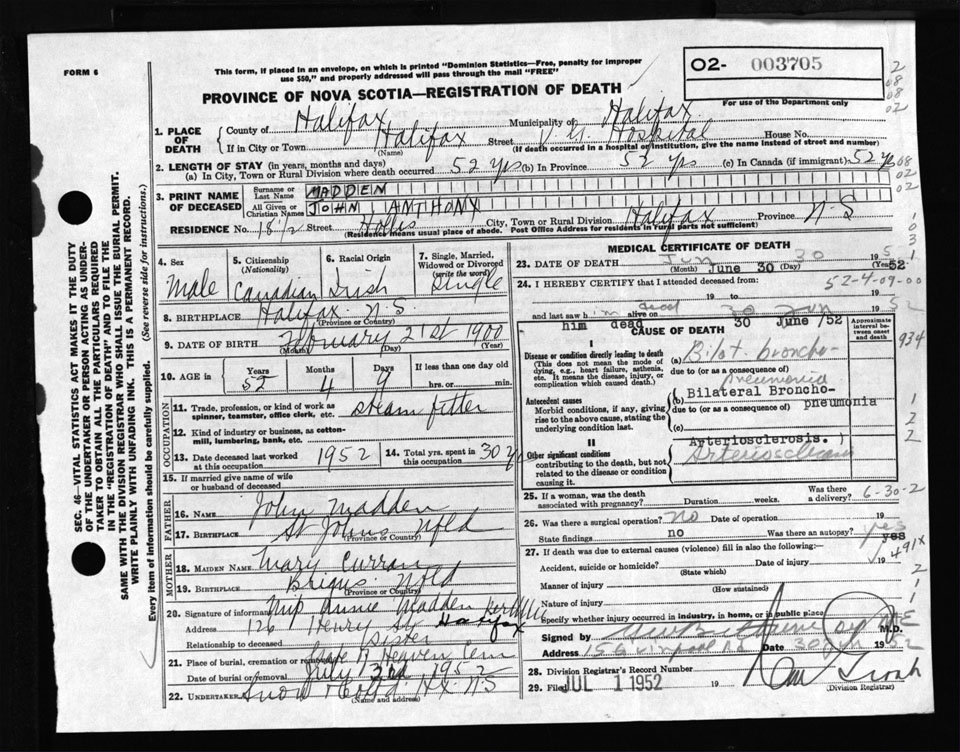 FORM 6
This form, if placed in an envelope, on which is printed "Dominion Statistics—Free, penalty for improper
use $50," and properly addressed will pass through the mail "FREE"
O2- 003705
For use of the Department only
PROVINCE OF NOVA SCOTIA—REGISTRATION OF DEATH
1. PLACE OF DEATH
County of Halifax Municipality of Halifax
If in City or Town Halifax Street V.G. Hospital House No.
(Name) (If death occurred in a hospital or institution, give the name instead of street and number)
2. LENGTH OF STAY (in years, months and days)
(a) In City, Town or Rural Division where death occurred 52 yrs (b) In Province 52 yrs (c) In Canada (if immigrant) 52 yrs
3. PRINT NAME OF DECEASED
Surname or Last Name MADDEN
All Given or Christian Names JOHN ANTHONY
RESIDENCE No. 18 1/2 Street Hollis City, Town or Rural Division Halifax Province N-S
(Residence means usual place of abode. Post Office Address for residents in rural parts not sufficient)
4. Sex
Male
5. Citizenship (Nationality)
Canadian
6. Racial Origin
Irish
7. Single, Married, Widowed or Divorced (write the word)
Single
8. BIRTHPLACE Halifax N-S
(Province or Country)
9. DATE OF BIRTH February 21st 1900
(Month) (Day) (Year)
10. AGE in Years 52 Months 4 Days 9 If less than one day old hrs. or min.
OCCUPATION
11. Trade, profession, or kind of work as spinner, teamster, office clerk, etc. steam fitter
12. Kind of industry or business, as cotton-mill, lumbering, bank, etc.
13. Date deceased last worked at this occupation 1952
14. Total yrs. spent in this occupation 30 yrs
15. If married give name of wife or husband of deceased
FATHER
16. Name John Madden
17. BIRTHPLACE St Johns Nfld
(Province or Country)
MOTHER
18. MAIDEN NAME Mary Curran
19. BIRTHPLACE Brigus Nfld
(Province or Country)
20. Signature of informant Annie Madden
Address 126 Henry St Halifax
Relationship to deceased Sister
21. Place of burial, cremation or removal Gate of Heaven Cem
Date of burial or removal July 3rd 1952
22. Undertaker Snow & Co Ltd Hx. N-S
(Name and address)
MEDICAL CERTIFICATE OF DEATH
23. DATE OF DEATH Jun 30 1952
(Month) June 30 (Day) 52
24. I HEREBY CERTIFY that I attended deceased from: 52-4-09-00
19 to 19
and last saw him dead alive on 30 Jun 1952
him dead 30 June /52
CAUSE OF DEATH
Approximate interval between onset and death
I
Disease or condition directly leading to death
(This does not mean the mode of dying, e.g., heart failure, asthenia, etc. It means the disease, injury, or complication which caused death.)
(a) Bilat. broncho-
due to (or as a consequence of)
pneumonia
Antecedent causes
Morbid conditions, if any, giving rise to the above cause, stating the underlying condition last.
(b) Bilateral Broncho-
due to (or as a consequence of) pneumonia
(c)
II
Other significant conditions
contributing to the death, but not related to the disease or condition causing it.
Arteriosclerosis.
Arteriosclerosis
25. If a woman, was the death associated with pregnancy? Duration weeks. Was there a delivery? 6-30-2
26. Was there a surgical operation? no Date of operation 19
State findings no Was there an autopsy? yes
yes
27. If death was due to external causes (violence) fill in also the following:—
Accident, suicide or homicide? Date of injury 19
(State which)
Manner of injury
(How sustained)
Nature of injury
Specify whether injury occurred in industry, in home, or in public place
Signed by M.D.
Address Date 30 Jun 1952
28. Division Registrar's Record Number
29. Filed JUL 1 1952 19
(Division Registrar)
SEC. 46—VITAL STATISTICS ACT MAKES IT THE DUTY
OF THE UNDERTAKER OR PERSON ACTING AS UNDER-
TAKER TO OBTAIN ALL THE PARTICULARS REQUIRED
IN THE "REGISTRATION OF DEATH" AND TO FILE THE
SAME WITH THE DIVISION REGISTRAR WHO SHALL ISSUE THE BURIAL PERMIT.
WRITE PLAINLY WITH UNFADING INK. THIS IS A PERMANENT RECORD.
Every item of information should be carefully supplied. (See reverse side for instructions.)
2
08
08
02
08
02
1
03
1
934
1
2
2
491X
2
1
1